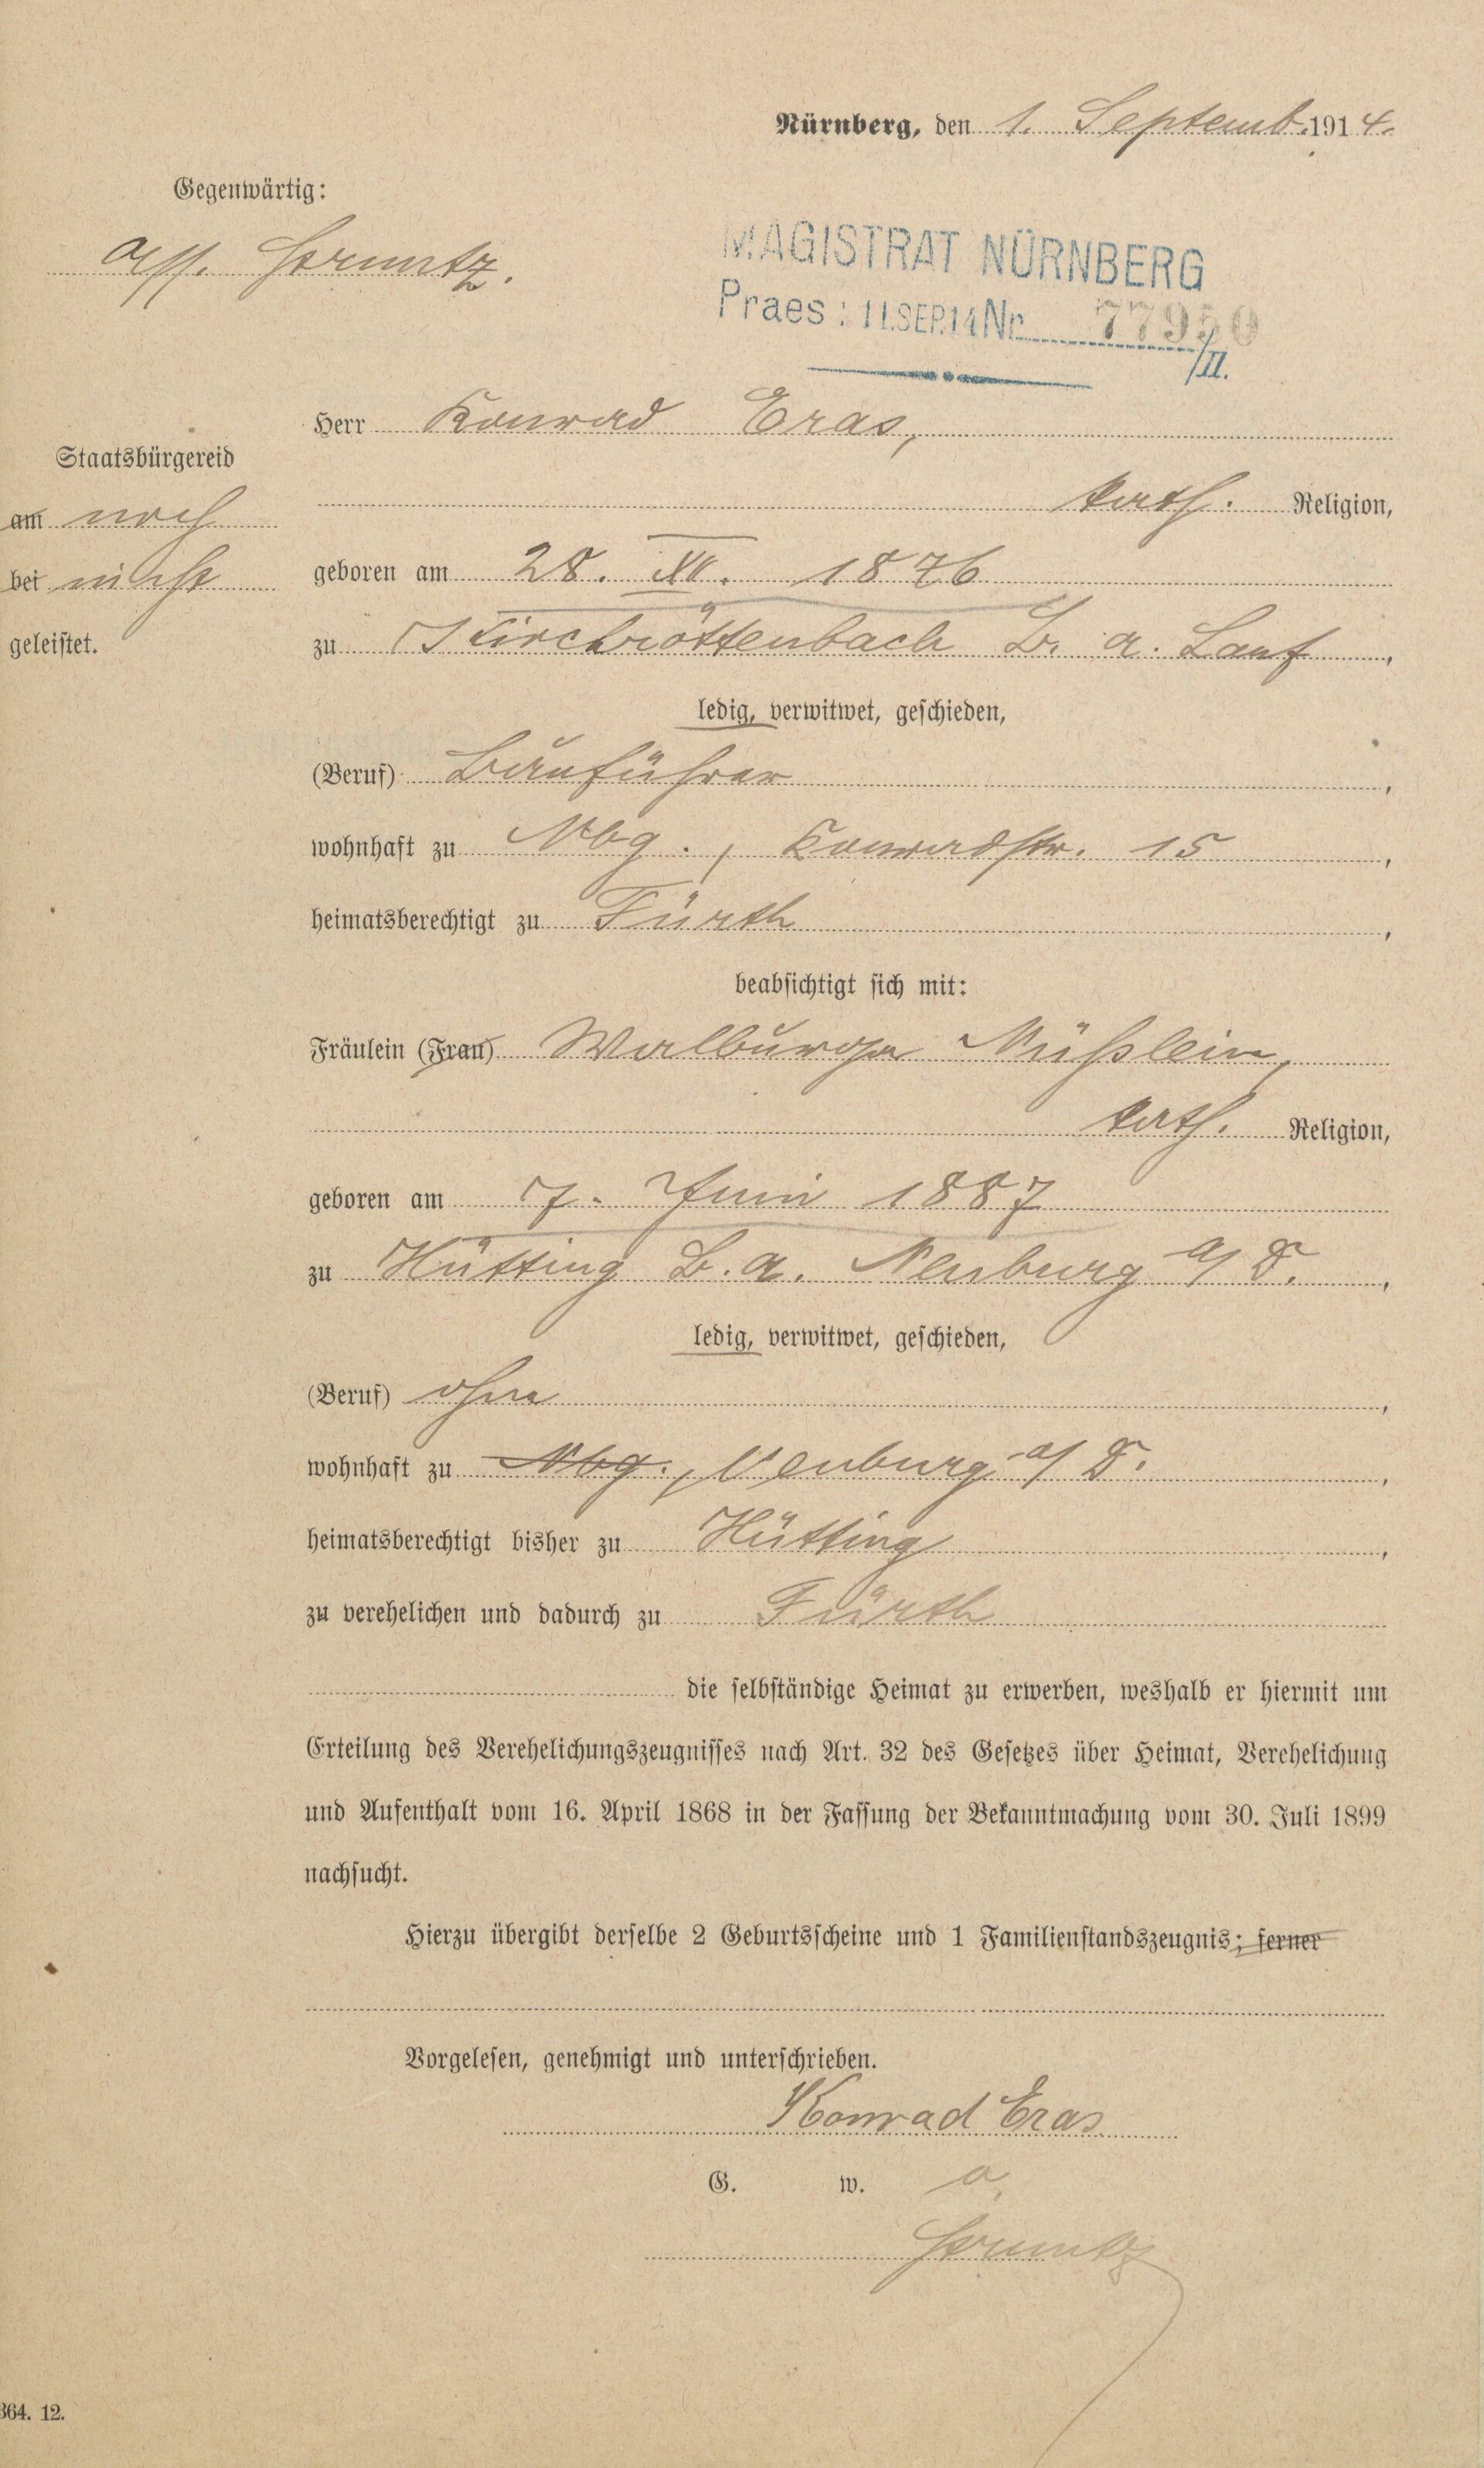 Nürnberg, den 1. Septemb. 1914.
Gegenwärtig:
Ass.
MAGISTRAT NÜRNBERG
Praes: 11.SEP.14 Nr. 77950
/II.
Herr Konrad Eras,
Staatsbürgereid
am noch
kath. Religion,
bei nicht
geboren am 28. XI. 1876
geleistet.
zu Kirchröttenbach B. a. Lauf,
ledig, verwitwet, geschieden,
(Beruf) Bauführer,
wohnhaft zu Nbg., Konradstr. 15,
heimatsberechtigt zu Fürth,
beabsichtigt sich mit:
Fräulein (Frau) Walburga Nüßlein,
kath. Religion,
geboren am 7. Juni 1887
zu Hütting B. a. Neuburg a/D.,
ledig, verwitwet, geschieden,
(Beruf) ohne,
wohnhaft zu Nbg., Neuburg a/D.,
heimatsberechtigt bisher zu Hütting,
zu verehelichen und dadurch zu Fürth
die selbständige Heimat zu erwerben, weshalb er hiermit um
Erteilung des Verehelichungszeugnisses nach Art. 32 des Gesetzes über Heimat, Verehelichung
und Aufenthalt vom 16. April 1868 in der Fassung der Bekanntmachung vom 30. Juli 1899
nachsucht.
Hierzu übergibt derselbe 2 Geburtsscheine und 1 Familienstandszeugnis; ferner
Vorgelesen, genehmigt und unterschrieben.
Konrad Eras
G. w. o.
364. 12.